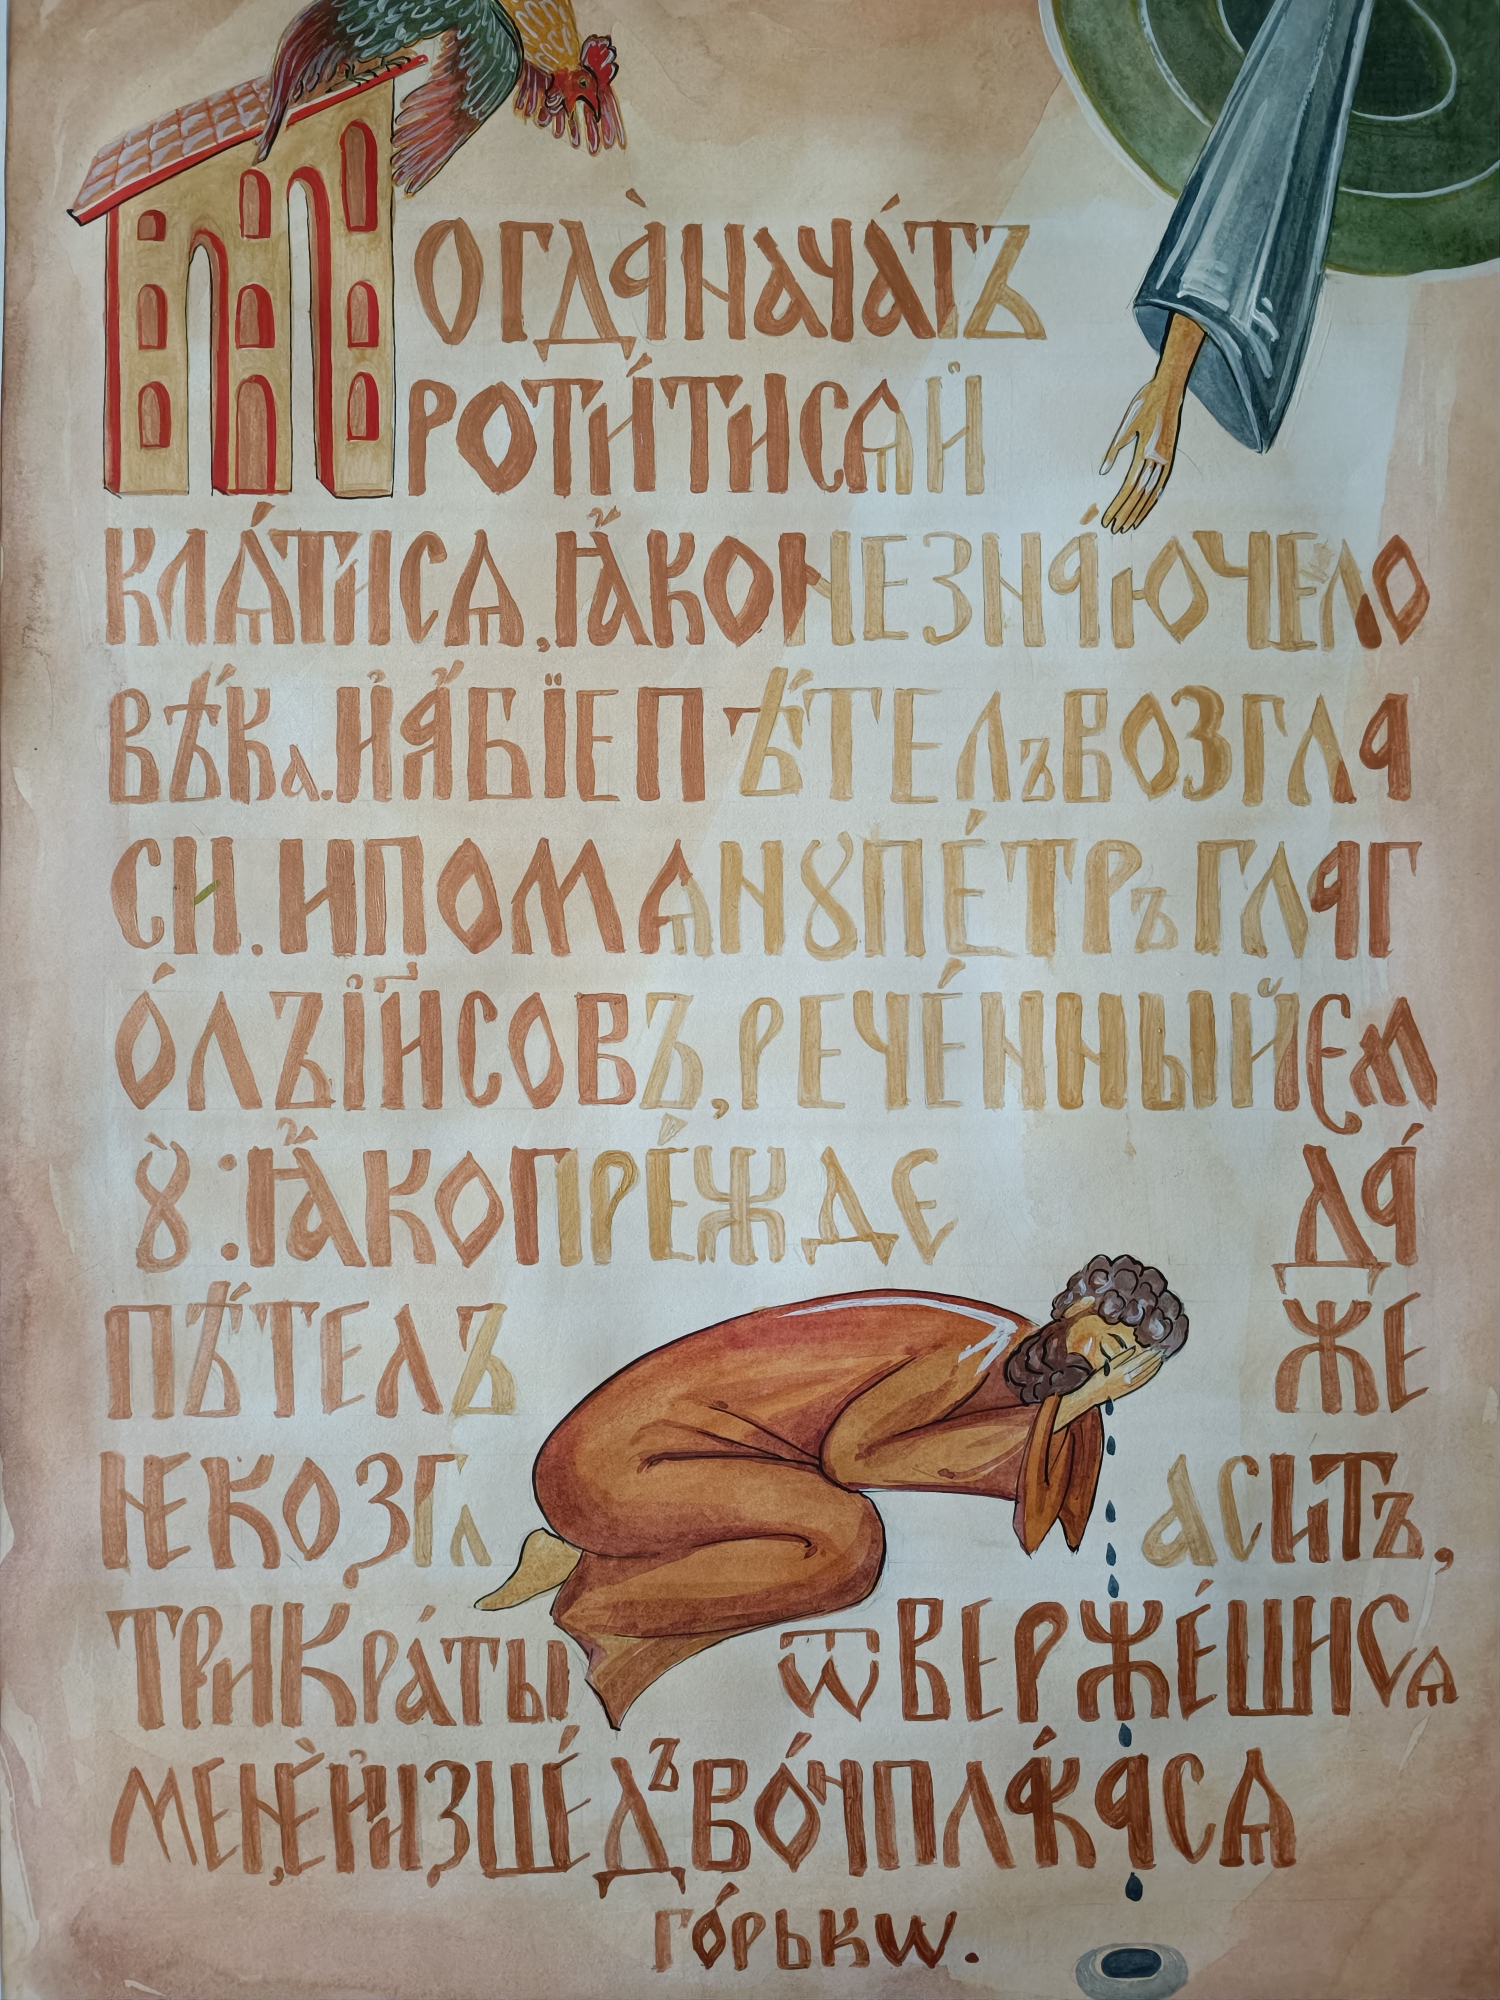 Тогда̀ нача́тъ
роти́тисѧ и҆
клѧ́тисѧ, ꙗ҆́кѡ не зна́ю чело
вѣ́ка. и҆ а҆́бїе пѣ́тель возгла
си. и помѧну ꙋ пе́тръ глаг
о́лъ і҆и҃совъ, рече́нный ем
ꙋ̀: ꙗ҆́ко пре́жде да́
пѣ́телъ же
не возгл аситъ,
трикра́ты ѿверже́шисѧ
менє̀, и҆ изше́дъ во́нъ пла́касѧ
го́рькѡ.